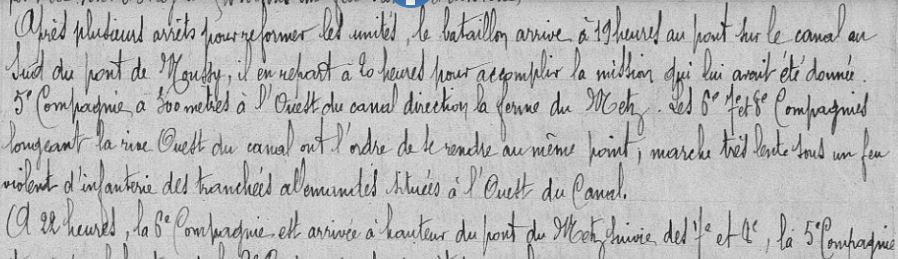 Après plusieurs arrêts pour reformer les unités, le bataillon arrive à 19 heures au pont sur le canal au
Sud du pont de Moussy, il en repart à 20 heures pour accomplir la mission qui lui avait été donnée.
5e Compagnie à 300 mètres à l'Ouest du canal direction la ferme du Metz. Les 6e 7e et 8e Compagnies
longeant la rive Ouest du canal ont l'ordre de se rendre au même point, marche très lente sous un feu
violent d'infanterie des tranchées allemandes situées à l'Ouest du Canal.
A 22 heures, la 6e Compagnie est arrivée à hauteur du pont du Metz suivie des 7e et 8e, la 5e Compagnie